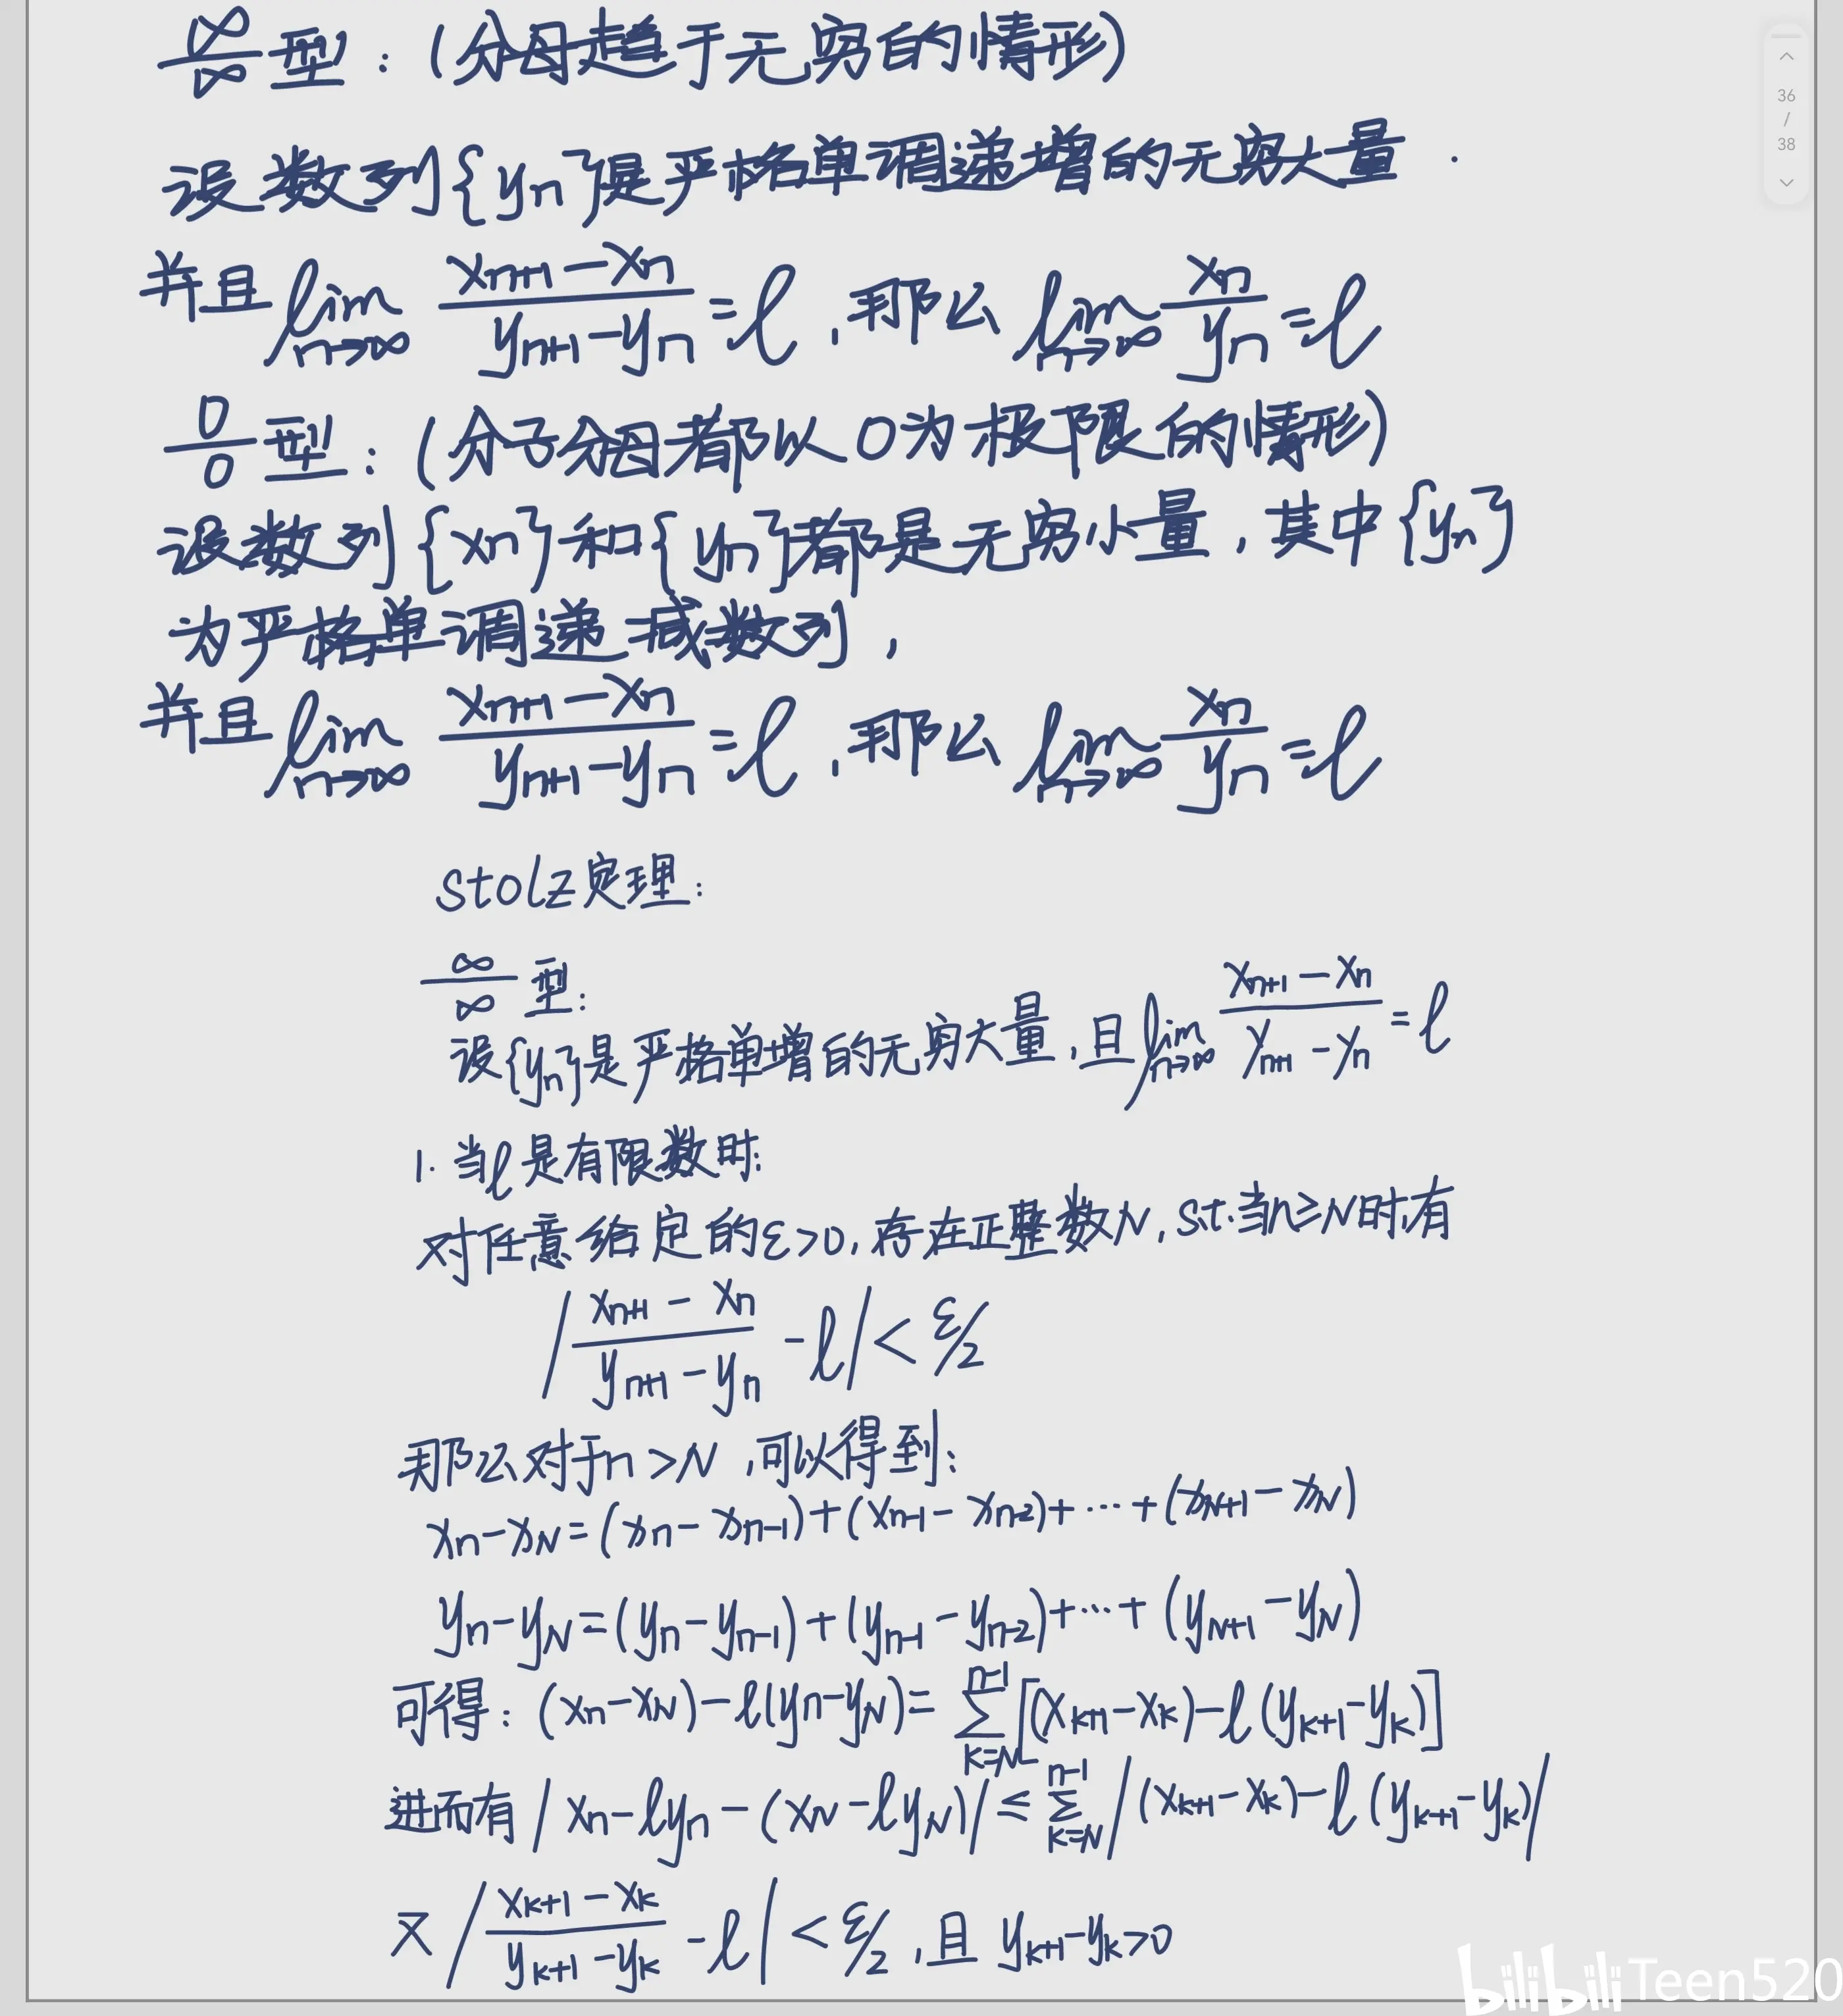 ∞/∞型：(分母趋于无穷的情形)
设数列{yn}是严格单调递增的无穷大量.
并且 lim n→∞ (xn+1-xn)/(yn+1-yn)=l,那么 lim n→∞ xn/yn=l
0/0型：(分子分母都以0为极限的情形)
设数列{xn}和{yn}都是无穷小量,其中{yn}
为严格单调递减数列,
并且 lim n→∞ (xn+1-xn)/(yn+1-yn)=l,那么 lim n→∞ xn/yn=l
Stolz定理:
∞/∞型:
设{yn}是严格单增的无穷大量,且 lim n→∞ (xn+1-xn)/(yn+1-yn)=l
1.当l是有限数时:
对任意给定的ε>0,存在正整数N,s.t.当n≥N时,有
|(xn+1-xn)/(yn+1-yn)-l|<ε/2
那么对于n>N,可以得到:
xn-xN=(xn-xn-1)+(xn-1-xn-2)+…+(xN+1-xN)
yn-yN=(yn-yn-1)+(yn-1-yn-2)+…+(yN+1-yN)
可得:(xn-xN)-l(yn-yN)=∑ k=N n-1 [(xk+1-xk)-l(yk+1-yk)]
进而有|xn-lyn-(xN-lyN)|≤∑ k=N n-1 |(xk+1-xk)-l(yk+1-yk)|
又|(xk+1-xk)/(yk+1-yk)-l|<ε/2,且yk+1-yk>0
36
/
38
bilibili Teen520